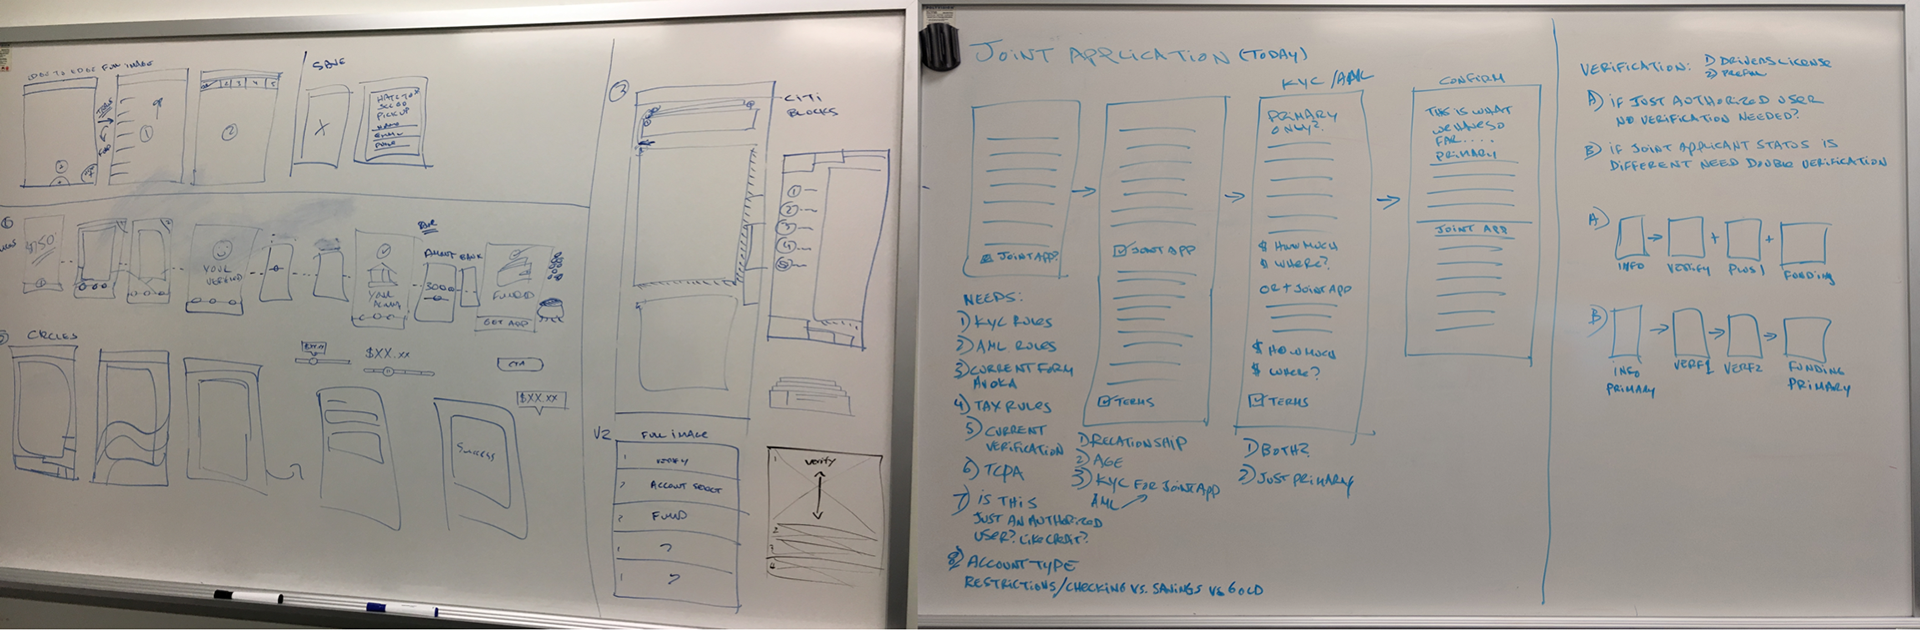 EDGE TO EDGE FULL IMAGE
1
2
2 3 4 5
SAVE
X
PICK UP
EMAIL
PHONE
3
CITI
BLOCKS
1
2
3
4
5
$750
YOUR
VERIFIED
YOUR
AMOUNT
BANK
5000
FUNDED
GET APP
CIRCLES
$XX.XX
CTA
$XX.XX
SUCCESS
V2
FULL IMAGE
1 VERIFY
2 ACCOUNT SELECT
FUND
?
?
1 VERIFY
2
JOINT APPLICATION (TODAY)
JOINT APP?
JOINT APP
TERMS
KYC / AML
PRIMARY
ONLY?
$ HOW MUCH
$ WHERE?
OR + JOINT APP
$ HOW MUCH
$ WHERE?
TERMS
CONFIRM
THIS IS WHAT
WE HAVE SO
FAR....
PRIMARY
JOINT APP
NEEDS:
1) KYC RULES
2) AML RULES
3) CURRENT FORM
AVOKA
4) TAX RULES
5) CURRENT
VERIFICATION
6) TCPA
7) IS THIS
JUST AN AUTHORIZED
USER? LIKE CREDIT?
8) ACCOUNT TYPE
RESTRICTIONS/CHECKING VS. SAVINGS VS GOLD
1) RELATIONSHIP
2) AGE
3) KYC FOR JOINT APP
AML
1) BOTH?
2) JUST PRIMARY
VERIFICATION: 1) DRIVERS LICENSE
2) PREFILL
A) IF JUST AUTHORIZED USER
NO VERIFICATION NEEDED?
B) IF JOINT APPLICANT STATUS IS
DIFFERENT NEED DOUBLE VERIFICATION
A)
+ +
INFO VERIFY PLUS 1 FUNDING
B)
INFO
PRIMARY
VERF1 VERF2
FUNDING
PRIMARY